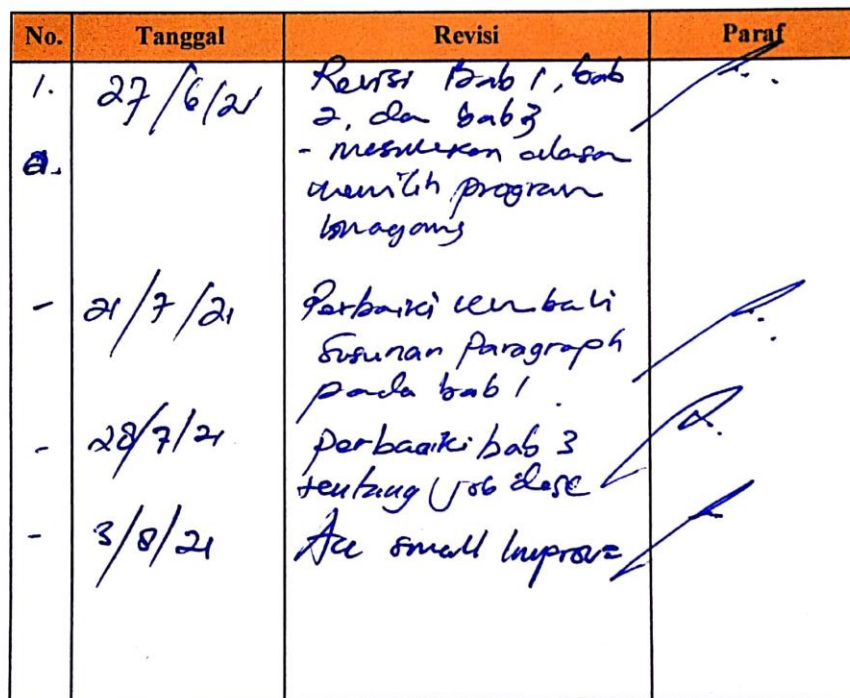 No. Tanggal Revisi Paraf
1. 27/6/21 Revisi Bab 1, bab
2, dan bab 3
- masukkan alasan
memilih program
- 21/7/21 Perbaiki kembali
Susunan Paragraph
pada bab 1
- 28/7/21 perbaiki bab 3
tentang job desc
- 3/8/21 Acc small Improve